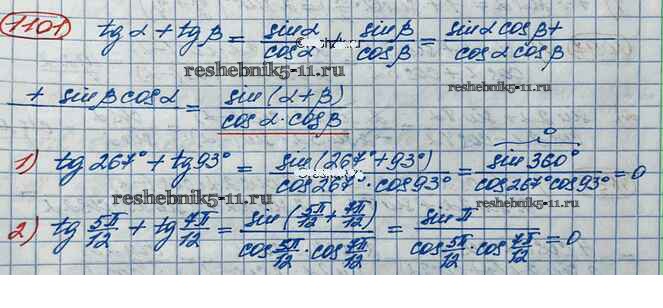 1101 tg α + tg β = sin α / cos α + sin β / cos β = sin α cos β + / cos α cos β
reshebnik5-11.ru
reshebnik5-11.ru
+ sin β cos α = sin (α + β) / cos α · cos β
1) tg 267° + tg 93° = sin (267° + 93°) / cos 267° · cos 93° = sin 360° / cos 267° cos 93° = 0
0
reshebnik5-11.ru
reshebnik5-11.ru
2) tg 5π/12 + tg 7π/12 = sin (5π/12 + 7π/12) / cos 5π/12 · cos 7π/12 = sin π / cos 5π/12 · cos 7π/12 = 0